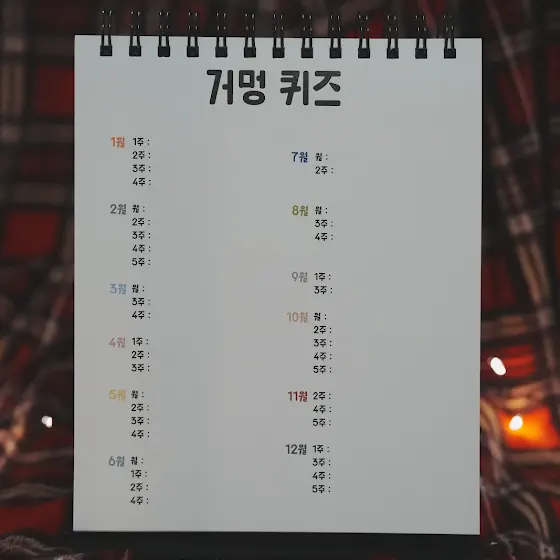 거멍 퀴즈
1월 1주 :
2주 :
3주 :
4주 :
2월 월 :
2주 :
3주 :
4주 :
5주 :
3월 월 :
3주 :
4주 :
4월 1주 :
2주 :
3주 :
5월 월 :
2주 :
3주 :
4주 :
6월 월 :
1주 :
2주 :
4주 :
7월 월 :
2주 :
8월 월 :
3주 :
4주 :
9월 1주 :
3주 :
10월 월 :
2주 :
3주 :
4주 :
5주 :
11월 2주 :
4주 :
5주 :
12월 1주 :
3주 :
4주 :
5주 :